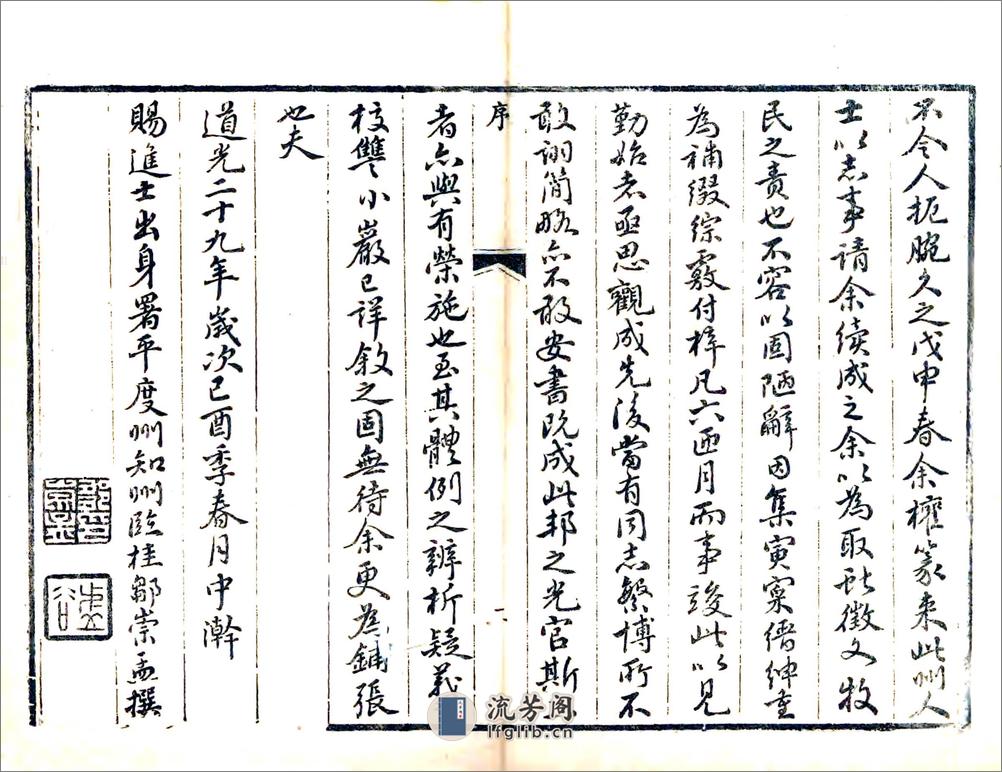 不令人扼腕久之戊申春余權篆来此州人
士以志事請余續成之余以為取獻徵文牧
民之責也不容以固陋辭因集寅寀縉紳重
為補綴綜覈付梓凡六匝月而事竣此以見
勤始者亟思觀成先後當有同志繁博所不
敢詡簡略亦不敢安書既成此邦之光官斯
序
二
者亦與有榮施也至其體例之辨析疑義
校讐小巖已詳敘之固無待余更為鋪張
也夫
道光二十九年歲次己酉季春月中澣
賜進士出身署平度州知州臨桂鄒崇孟撰
流芳阁
lfglib.cn